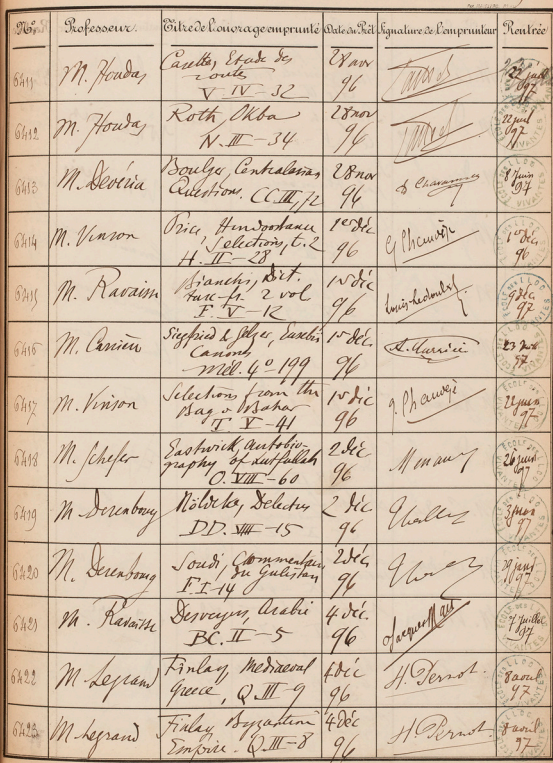 Nos Professeur. Titre de l'ouvrage emprunté Date du Prêt Signature de l'emprunteur Rentrée
6411 M. Houdas Carette, Etude des routes V IV - 32 28 nov 96 22 juil 97
6412 M. Houdas Roth, Okba N. III - 34 28 nov 96 22 juil 97
6413 M. Devéria Boulger, Centralasian Questions. CC. III, 72 28 nov 96 8 juin 97
6414 M. Vinson Price, Hindoostanee Selections, t. 2 H. II - 28 1er déc 96 G Chauvin 1er déc 96
6415 M. Ravaisse Bianchi, Dict. turc-fr. 2 vol F. V - 12 1er déc 96 9 déc 97
6416 M. Carrière Siegfried & Gelzer, Eusebii Canons Mél. 4o 199 1er déc. 96 23 97
6417 M. Vinson Selections from the Bag o Bahar T V - 41 1er déc 96 22 juin 97
6418 M. Schefer Eastwick, autobiography of Lutfullah O. VIII - 60 2 déc 96 26 juin 97
6419 M. Derenbourg Nöldeke, Delectus DD. VIII - 15 2 déc 96 97
6420 M. Derenbourg Soudi, Commentaire du Gulistan F. I - 14 2 déc 96 97
6421 M. Ravaisse Desvergers, Arabie BC. II - 5 4 déc. 96 7 juillet 97
6422 M. Legrand Finlay, Mediaeval Greece, Q. III - 9 4 déc 96 H. Pernot. 8 avril 97
6423 M. Legrand Finlay Byzantine Empire. Q. III - 8 4 déc 96 H. Pernot. 8 avril 97